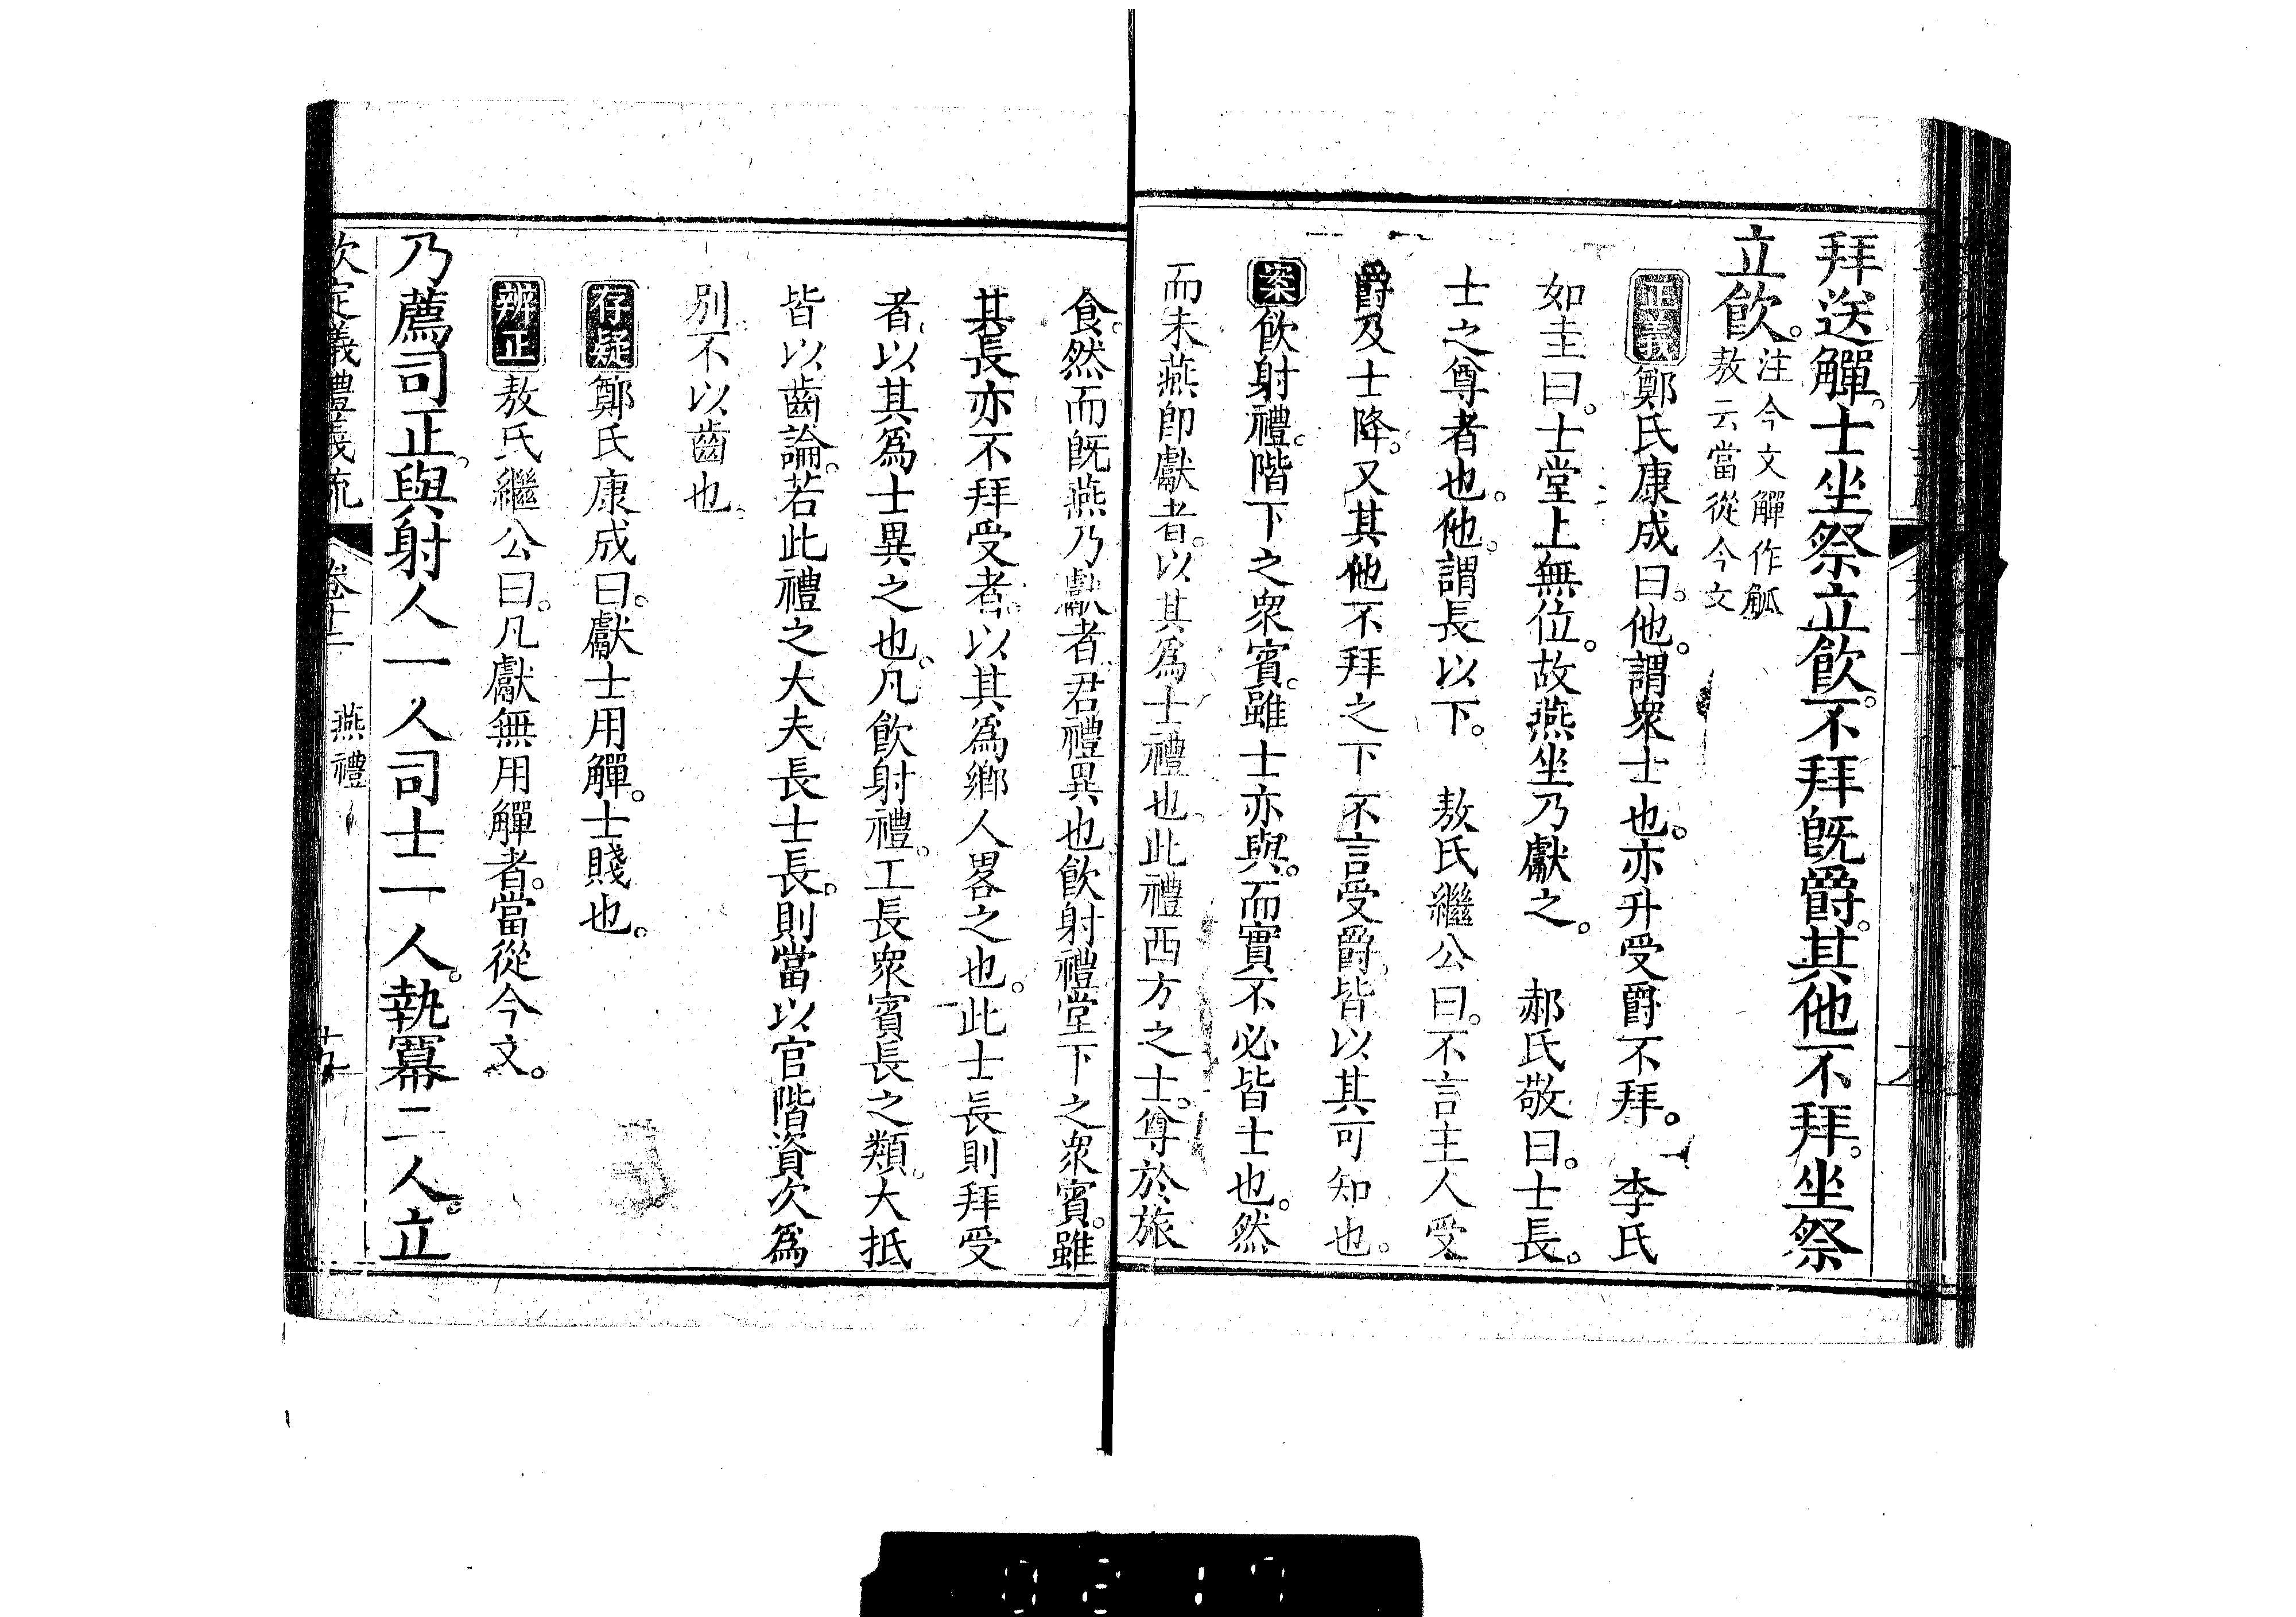 拜送觶。士坐祭立飲。不拜旣爵。其他不拜。坐祭
立飲。注今文觶作觚
敖云當從今文
正義鄭氏康成曰。他。謂衆士也。亦升受爵不拜。　李氏
如圭曰。士堂上無位。故燕坐乃獻之。　郝氏敬曰。士長。
士之尊者也。他。謂長以下。　敖氏繼公曰。不言主人受
爵及士降。又其他不拜之下不言受爵。皆以其可知也。
案飲射禮。階下之衆賓。雖士亦與。而實不必皆士也。然
而未燕卽獻者。以其爲士禮也。此禮西方之士。尊於旅
食。然而旣燕乃獻者。君禮異也。飲射禮堂下之衆賓。雖
其長亦不拜受者。以其爲鄉人畧之也。此士長則拜受
者。以其爲士異之也。凡飲射禮。工長衆賓長之類。大抵
皆以齒論。若此禮之大夫長士長。則當以官階資次爲
別。不以齒也。
存疑鄭氏康成曰。獻士用觶。士賤也。
辨正敖氏繼公曰。凡獻無用觶者。當從今文。
乃薦司正。與射人一人司士一人。執冪二人。立
欽定儀禮義疏　卷十二　燕禮　十五